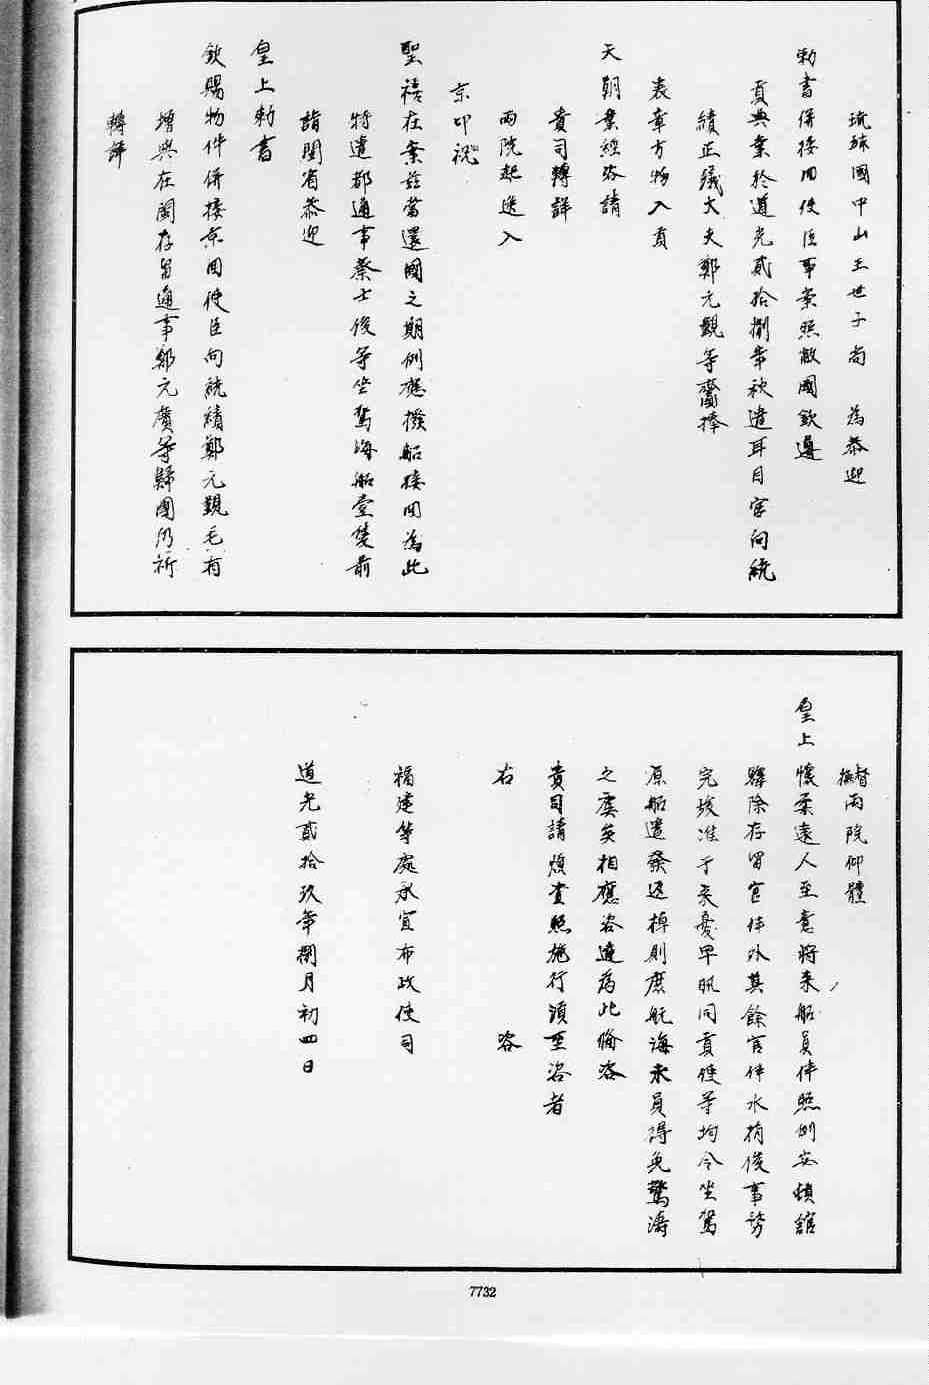 琉球國中山王世子尚　為恭迎
勅書併接回使臣事案照敝國欽遵
貢典業於道光貳拾捌年秋遣耳目官向統
績正議大夫鄭元覲等齎捧
表章方物入貢
天朝業經咨請
貴司轉詳
兩院起送入
京叩祝
聖禧在案茲當還國之期例應撥船接回為此
特遣都通事蔡士俊等坐駕海船壹隻前
詣閩省恭迎
皇上勅書
欽賜物件併接京回使臣向統績鄭元覲毛有
增與在閩存留通事鄭元廣等歸國仍祈
轉詳
督撫兩院仰體
皇上懷柔遠人至意將来船員伴照例安頓館
驛除存留官伴外其餘官伴水梢俟事務
完竣准于来夏早汛同貢使等均令坐駕
原船遣發返棹則庶航海末員得免驚濤
之虞矣相應咨達為此備咨
貴司請煩查照施行須至咨者
右　咨
福建等處承宣布政使司
道光貳拾玖年捌月初四日
7732